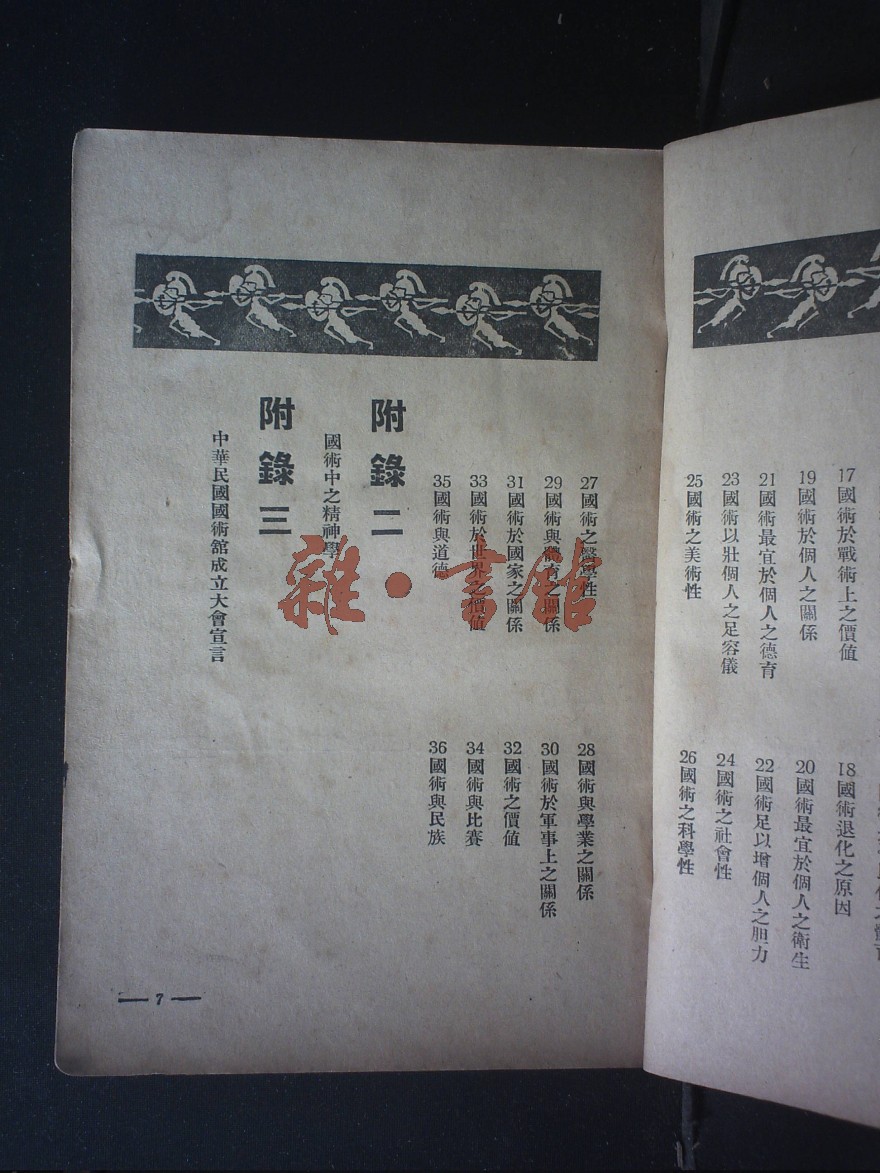 17國術於戰術上之價值
18國術退化之原因
19國術於個人之關係
20國術最宜於個人之衛生
21國術最宜於個人之德育
22國術足以增個人之胆力
23國術以壯個人之足容儀
24國術之社會性
25國術之美術性
26國術之科學性
27國術之醫學性
28國術與學業之關係
29國術與體育之關係
30國術於軍事上之關係
31國術於國家之關係
32國術之價值
33國術於世界之價值
34國術與比賽
35國術與道德
36國術與民族
附錄二
國術中之精神學
附錄三
中華民國國術館成立大會宣言
— 7 —
雜·書館